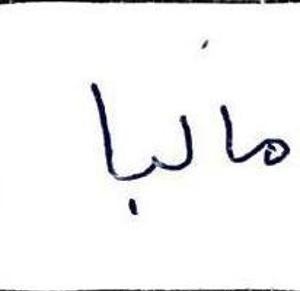 غالبا